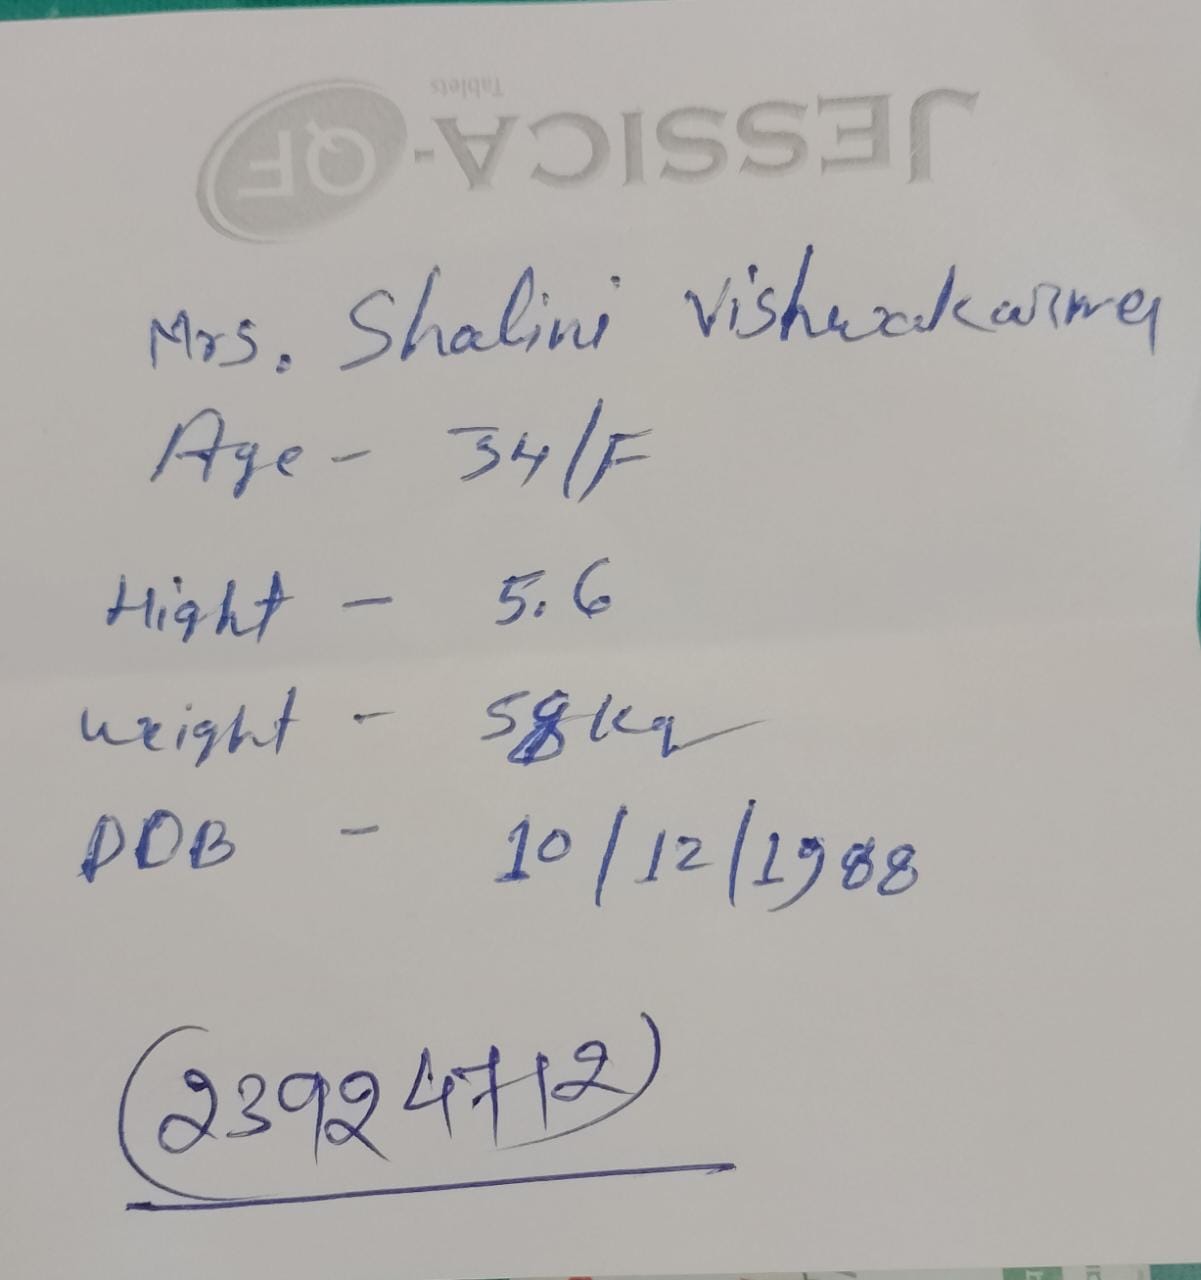 JESSICA-QF
Tablets
Mrs. Shalini Vishwakarma
Age - 34/F
Hight - 5.6
weight - 58kg
DOB - 10/12/1988
(23924712)